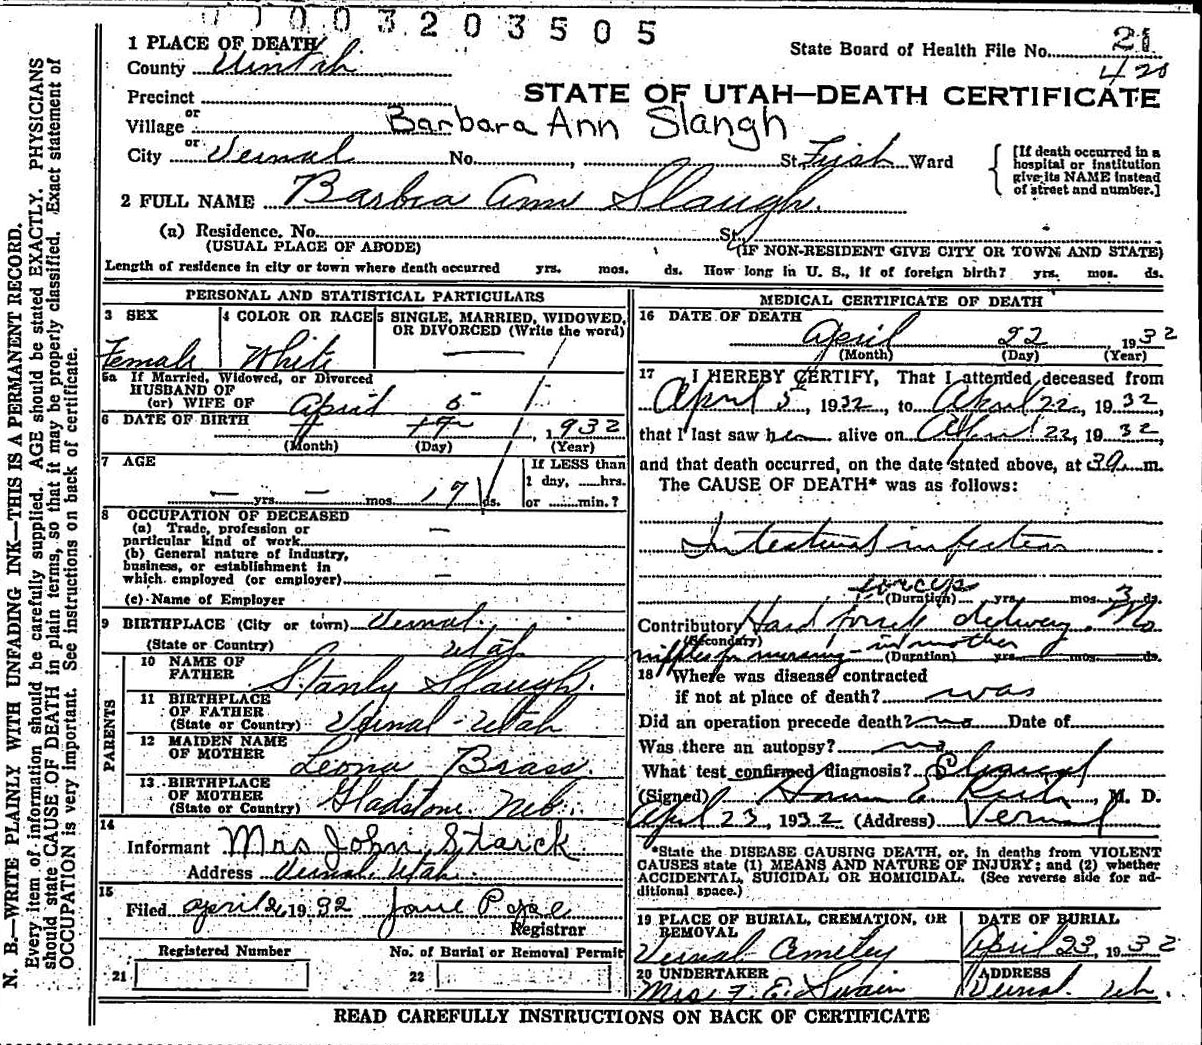 003203505
1 PLACE OF DEATH
County Uintah
State Board of Health File No. 21
420
Precinct
or
STATE OF UTAH—DEATH CERTIFICATE
Village Barbara Ann Slangh
or
City Vernal No. , St. First Ward
[If death occurred in a hospital or institution give its NAME instead of street and number.]
2 FULL NAME Barbra Ann Slaugh.
(a) Residence. No. St.
(USUAL PLACE OF ABODE) (IF NON-RESIDENT GIVE CITY OR TOWN AND STATE)
Length of residence in city or town where death occurred yrs. mos. ds. How long in U. S., if of foreign birth? yrs. mos. ds.
PERSONAL AND STATISTICAL PARTICULARS
3 SEX
Female
4 COLOR OR RACE
White
5 SINGLE, MARRIED, WIDOWED,
OR DIVORCED (Write the word)
5a If Married, Widowed, or Divorced
HUSBAND OF
(or) WIFE OF
April 5
6 DATE OF BIRTH , 1932
(Month) (Day) (Year)
7 AGE
— yrs. — mos. 17 ds.
If LESS than
1 day, hrs.
or min.?
8 OCCUPATION OF DECEASED
(a) Trade, profession or
particular kind of work —
(b) General nature of industry,
business, or establishment in
which employed (or employer) —
(c) Name of Employer
9 BIRTHPLACE (City or town) Vernal.
(State or Country) Utah
PARENTS
10 NAME OF
FATHER Stanly Slaugh.
11 BIRTHPLACE
OF FATHER
(State or Country) Vernal - Utah
12 MAIDEN NAME
OF MOTHER Leona Brass.
13 BIRTHPLACE
OF MOTHER
(State or Country) Gladstone. Neb.
14
Informant Mrs John Starck
Address Vernal. Utah.
15
Filed April 26 1932 Jane Pope
Registrar
Registered Number
21
No. of Burial or Removal Permit
22
MEDICAL CERTIFICATE OF DEATH
16 DATE OF DEATH
April 22, 1932
(Month) (Day) (Year)
17 I HEREBY CERTIFY, That I attended deceased from
April 5, 1932, to April 22, 1932,
that I last saw her alive on April 22, 1932,
and that death occurred, on the date stated above, at m.
The CAUSE OF DEATH* was as follows:
Intestinal infection
forceps
(Duration) yrs. mos. 3 ds.
Contributory Hard delivery. No
(Secondary)
nipples for nursing - in mother
(Duration) yrs. mos. ds.
18 Where was disease contracted
if not at place of death? was
Did an operation precede death? no Date of
Was there an autopsy? no
What test confirmed diagnosis? Clinical
(Signed) M. D.
April 23, 1932 (Address) Vernal
*State the DISEASE CAUSING DEATH, or, in deaths from VIOLENT
CAUSES state (1) MEANS AND NATURE OF INJURY; and (2) whether
ACCIDENTAL, SUICIDAL OR HOMICIDAL. (See reverse side for ad-
ditional space.)
19 PLACE OF BURIAL, CREMATION, OR
REMOVAL
Vernal
DATE OF BURIAL
April 23, 1932
20 UNDERTAKER
Mrs F. E. Swain
ADDRESS
Vernal. Ut.
READ CAREFULLY INSTRUCTIONS ON BACK OF CERTIFICATE
N. B.—WRITE PLAINLY WITH UNFADING INK—THIS IS A PERMANENT RECORD.
Every item of information should be carefully supplied. AGE should be stated EXACTLY. PHYSICIANS
should state CAUSE OF DEATH in plain terms, so that it may be properly classified. Exact statement of
OCCUPATION is very important. See instructions on back of certificate.